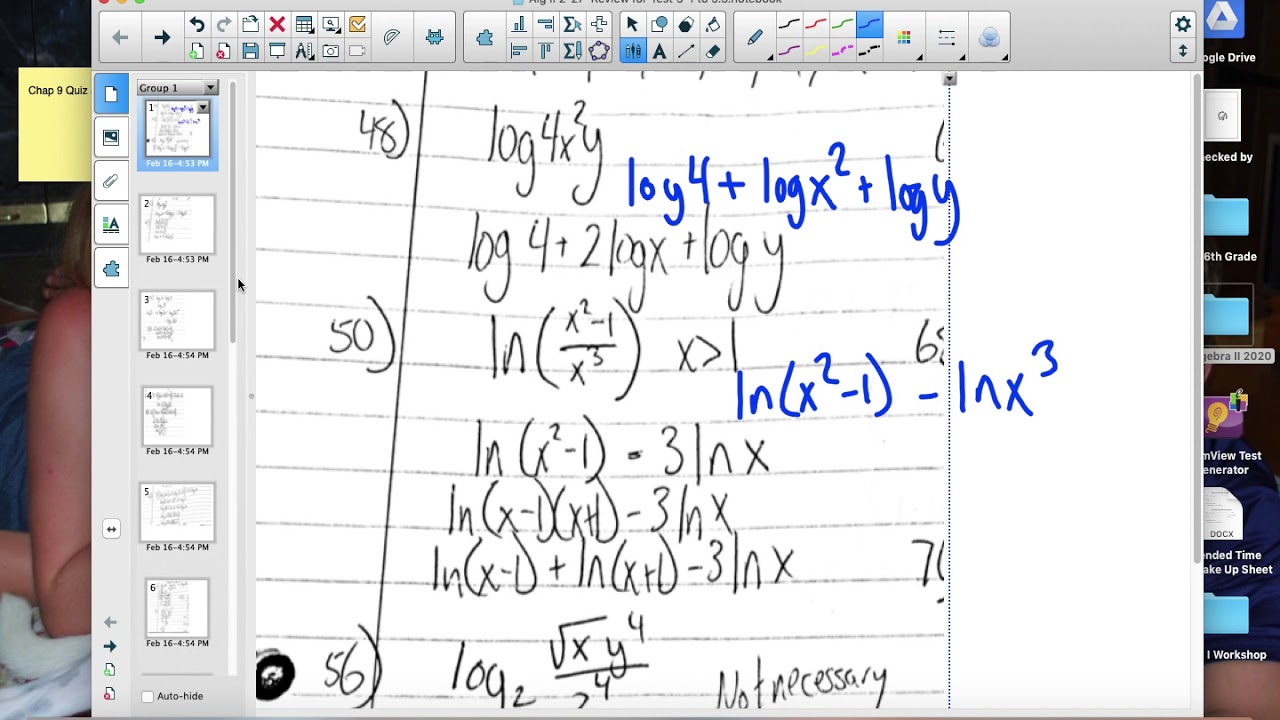 Alg II 2-27 Review for Test
Chap 9 Quiz
Group 1
1
Feb 16-4:53 PM
2
Feb 16-4:53 PM
3
Feb 16-4:53 PM
4
Feb 16-4:54 PM
5
Feb 16-4:54 PM
Feb 16-4:54 PM
Auto-hide
48) log4x²y
log4 + logx² + logy
log4 + 2logx + logy
50) ln((x²-1)/x³) x>1
ln(x²-1) - lnx³
ln(x²-1) - 3lnx
ln(x-1)(x+1) - 3lnx
ln(x-1) + ln(x+1) - 3lnx
56) log₂ √x y⁴
Not necessary
gle Drive
ecked by
6th
ade
gebra II 2020
mView Test
enerator
DOCX
ended Time
ake Up Sheet
l Workshop